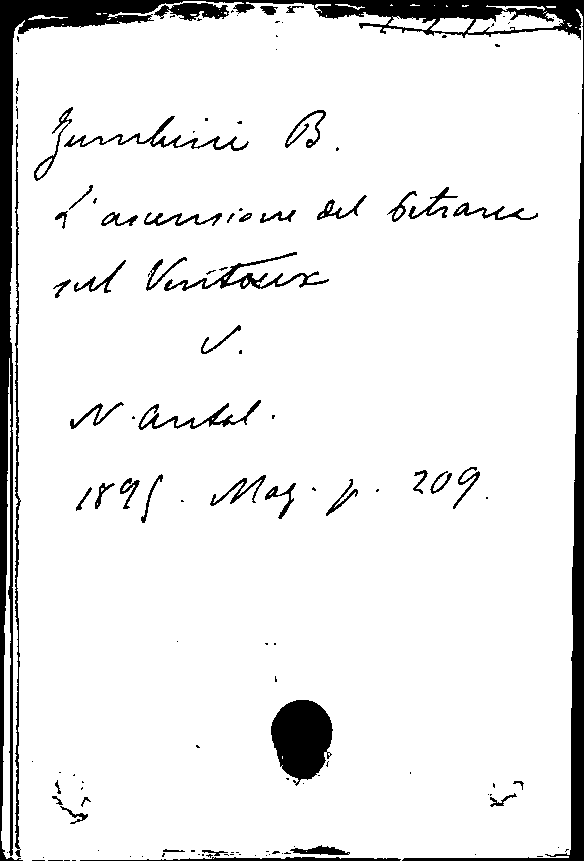 Zumbini B.
L'ascensione del Petrarca
sul Ventoux
V.
N. Antol.
1895. Mag. p. 209.